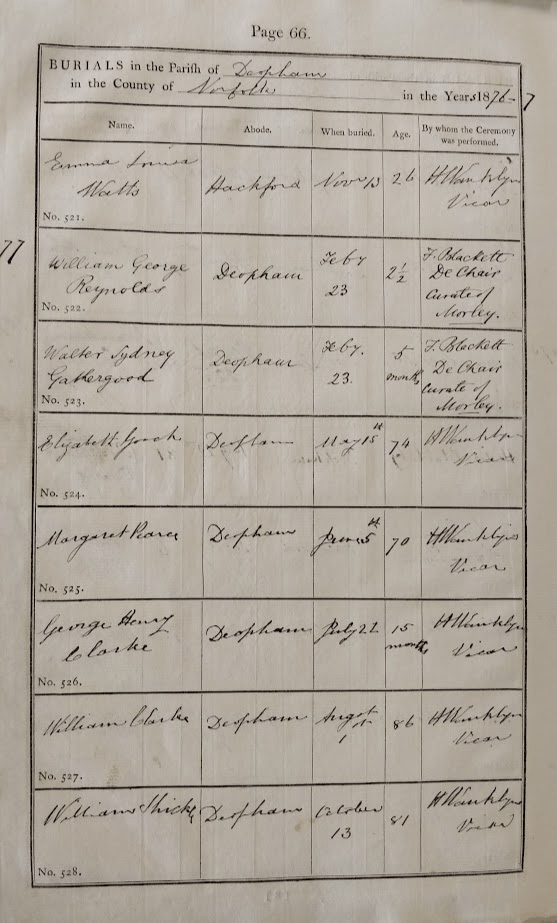 Page 66.
BURIALS in the Parish of Deopham
in the County of Norfolk in the Years 1876-7
Name. Abode. When buried. Age. By whom the Ceremony was performed.
Emma Louisa
Watts
Hackford
Novr 13
26
Vicar
No. 521.
77
William George
Reynolds
Deopham
Feby
23
2½
F. Blackett
De Chair
Curate of
Morley.
No. 522.
Walter Sydney
Gathergood
Deopham
Feby.
23.
5
months
F. Blackett
De Chair
Curate of
Morley.
No. 523.
Elizabeth Gooch
Deopham
May 15th
74
Vicar
No. 524.
Margaret Pearce
Deopham
June 5th
70
Vicar
No. 525.
George Henry
Clarke
Deopham
July 22
15
months
Vicar
No. 526.
William Clarke
Deopham
Augst
1
86
Vicar
No. 527.
William
Deopham
October
13
81
Vicar
No. 528.